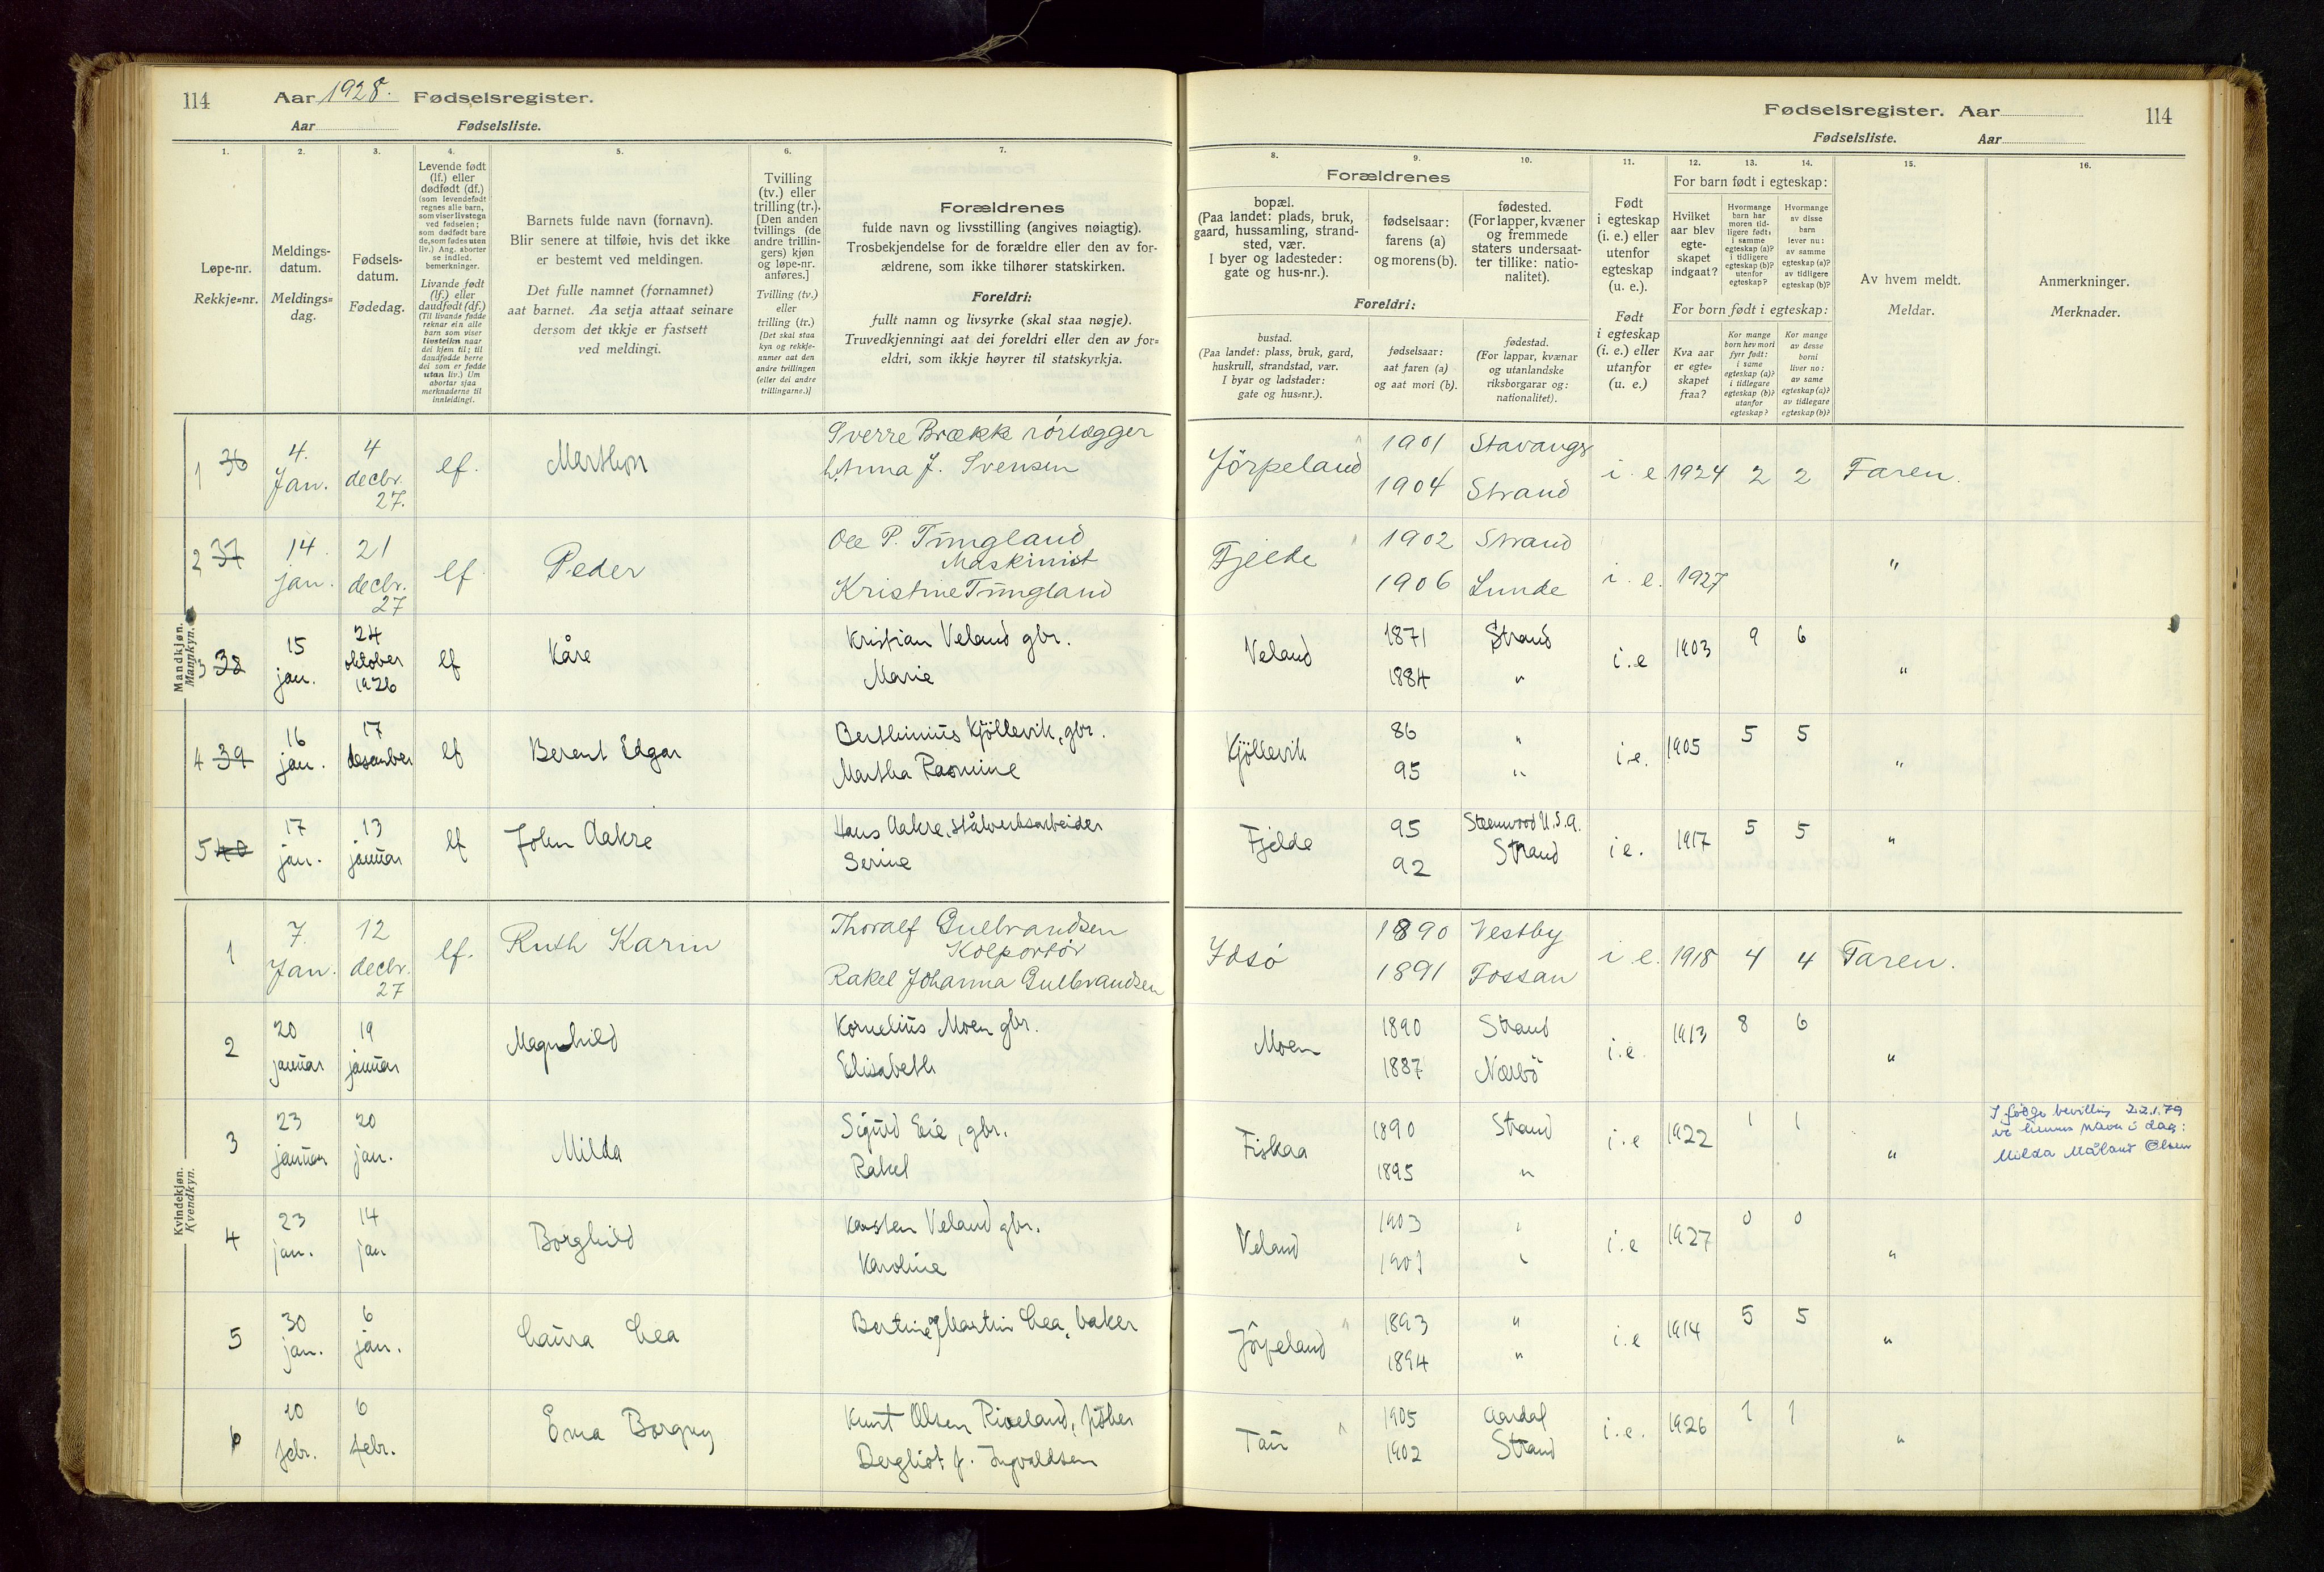 114
Aar 1928. Fødselsregister.
Aar Fødselsliste.
1.
Løpe-nr.
Rekkje=nr.
2.
Meldings-
datum.
Meldings=
dag.
3.
Fødsels-
datum.
Fødedag.
4.
Levende født
(lf.) eller
dødfødt (df.)
(som levendefødt
regnes alle barn,
som viser livstegn
ved fødselen;
som dødfødt bare
de, som fødes uten
liv.) Ang. aborter
se indled.
bemerkninger.
Livande født
(lf.) eller
daudfødt (df.)
(Til livande fødde
reknar ein alle
barn som viser
livsteikn naar
dei kjem til; til
daudfødde berre
dei som er fødde
utan liv.) Um
abortar sjaa
merknaderne til
innleidingi.
5.
Barnets fulde navn (fornavn).
Blir senere at tilføie, hvis det ikke
er bestemt ved meldingen.
Det fulle namnet (fornamnet)
aat barnet. Aa setja attaat seinare
dersom det ikkje er fastsett
ved meldingi.
6.
Tvilling
(tv.) eller
trilling (tr.).
[Den anden
tvillings (de
andre trillin-
gers) kjøn
og løpe-nr.
anføres.]
Tvilling (tv.)
eller
trilling (tr.)
[Det skal staa
kyn og rekkje-
numer aat den
andre tvillingen
(eller dei andre
trillingarne.)]
7.
Forældrenes
fulde navn og livsstilling (angives nøiagtig).
Trosbekjendelse for de forældre eller den av for-
ældrene, som ikke tilhører statskirken.
Foreldri:
fullt namn og livsyrke (skal staa nøgje).
Truvedkjenningi aat dei foreldri eller den av for=
eldri, som ikkje høyrer til statskyrkja.
Fødselsregister. Aar
114
Fødselsliste. Aar
8.
Forældrenes
bopæl.
(Paa landet: plads, bruk,
gaard, hussamling, strand-
sted, vær.
I byer og ladesteder:
gate og hus-nr.).
Foreldri:
bustad.
(Paa landet: plass, bruk, gard,
huskrull, strandstad, vær.
I byar og ladstader:
gate og hus=nr.).
9.
fødselsaar:
farens (a)
og morens (b).
fødselsaar:
aat faren (a)
og aat mori (b).
10.
fødested.
(For lapper, kvæner
og fremmede
staters undersaat-
ter tillike: natio-
nalitet).
fødestad.
(For lappar, kvænar
og utanlandske
riksborgarar og:
nationalitet).
11.
Født
i egteskap
(i. e.) eller
utenfor
egteskap
(u. e.).
Født
i egteskap
(i. e.) eller
utanfor
(u. e.)
12.
For barn født i egteskap:
Hvilket
aar blev
egte-
skapet
indgaat?
For born født i egteskap:
Kva aar
er egte=
skapet
fraa?
13.
Hvormange
barn har
moren tid-
ligere født:
i samme
egteskap (a)?
i tidligere
egteskap (b)?
utenfor
egteskap?
Kor mange
born hev mori
fyrr født:
i same
egteskap (a)?
i tidlegare
egteskap (b)?
utanfor
egteskap?
14.
Hvormange
av disse
barn
lever nu:
av samme
egteskap (a)?
av tidligere
egteskap (b)?
Kor mange
av desse
borni
liver no:
av same
egteskap (a)?
av tidlegare
egteskap (b)?
15.
Av hvem meldt.
Meldar.
16.
Anmerkninger.
Merknader.
Mandkjøn.
Mannkyn.
1 36 4. Jan. 4 decbr. 27. lf. Marthon Sverre Brække rörlægger
Anna J. Svensen
Jörpeland 1901 Stavanger
1904 Strand i. e. 1924 2 2 Faren.
2 37 14. jan. 21 decbr. 27 lf. Peder Ole P. Tungland
Maskinist
Kristine Tungland
Fjelde 1902 Strand
1906 Lunde i. e. 1927 "
3 38 15 jan. 24 oktober 1926 lf Kåre Kristian Veland gbr.
Marie
Veland 1871 Strand
1884 " i.e 1903 9 6 "
4 39 16 jan. 17 desember lf Berent Edgar Berthinius Kjöllevik, gbr.
Martha Rasmine
Kjöllevik 86 "
95 " i.e. 1905 5 5 "
5 40 17 jan. 13 januar lf John Aakre Hans Aakre, stålverksarbeider
Serine
Fjelde 95 Steenwood U.S.a.
92 Strand i e. 1917 5 5 "
Kvindekjøn.
Kvendkyn.
1 7. Jan. 12 decbr. 27 lf. Ruth Karin Thoralf Gulbrandsen
Kolportör
Rakel Johanna Gulbrandsen
Idsö 1890 Vestby
1891 Fossan i e. 1918 4 4 Faren.
2 20 januar 19 januar Magnhild Kornelius Moen gbr.
Elisabeth
Moen 1890 Strand
1887 Nærbö i.e. 1913 8 6 "
3 23 januar 20 jan. Milda Sigurd Eie, gbr.
Rakel
Fiskaa 1890 Strand
1895 " i.e 1922 1 1 "
I følge bevilling 22.1.79
er hennes navn i dag:
Milda Måland Olsen
4 23 jan. 14 jan Borghild Karsten Veland gbr.
Karoline
Veland 1903 "
1901 " i.e 1927 0 0 "
5 30 jan. 6 jan. Laura Lea Bertine og Martin Lea, baker
Jörpeland 1893 "
1894 " i.e 1914 5 5 "
6 10 febr. 6 febr. Erna Borgny Kunt Olsen Riveland, fisker
Bergliot J. Ingvaldsen
Tau 1905 Aardal
1902 Strand i.e. 1926 1 1 "